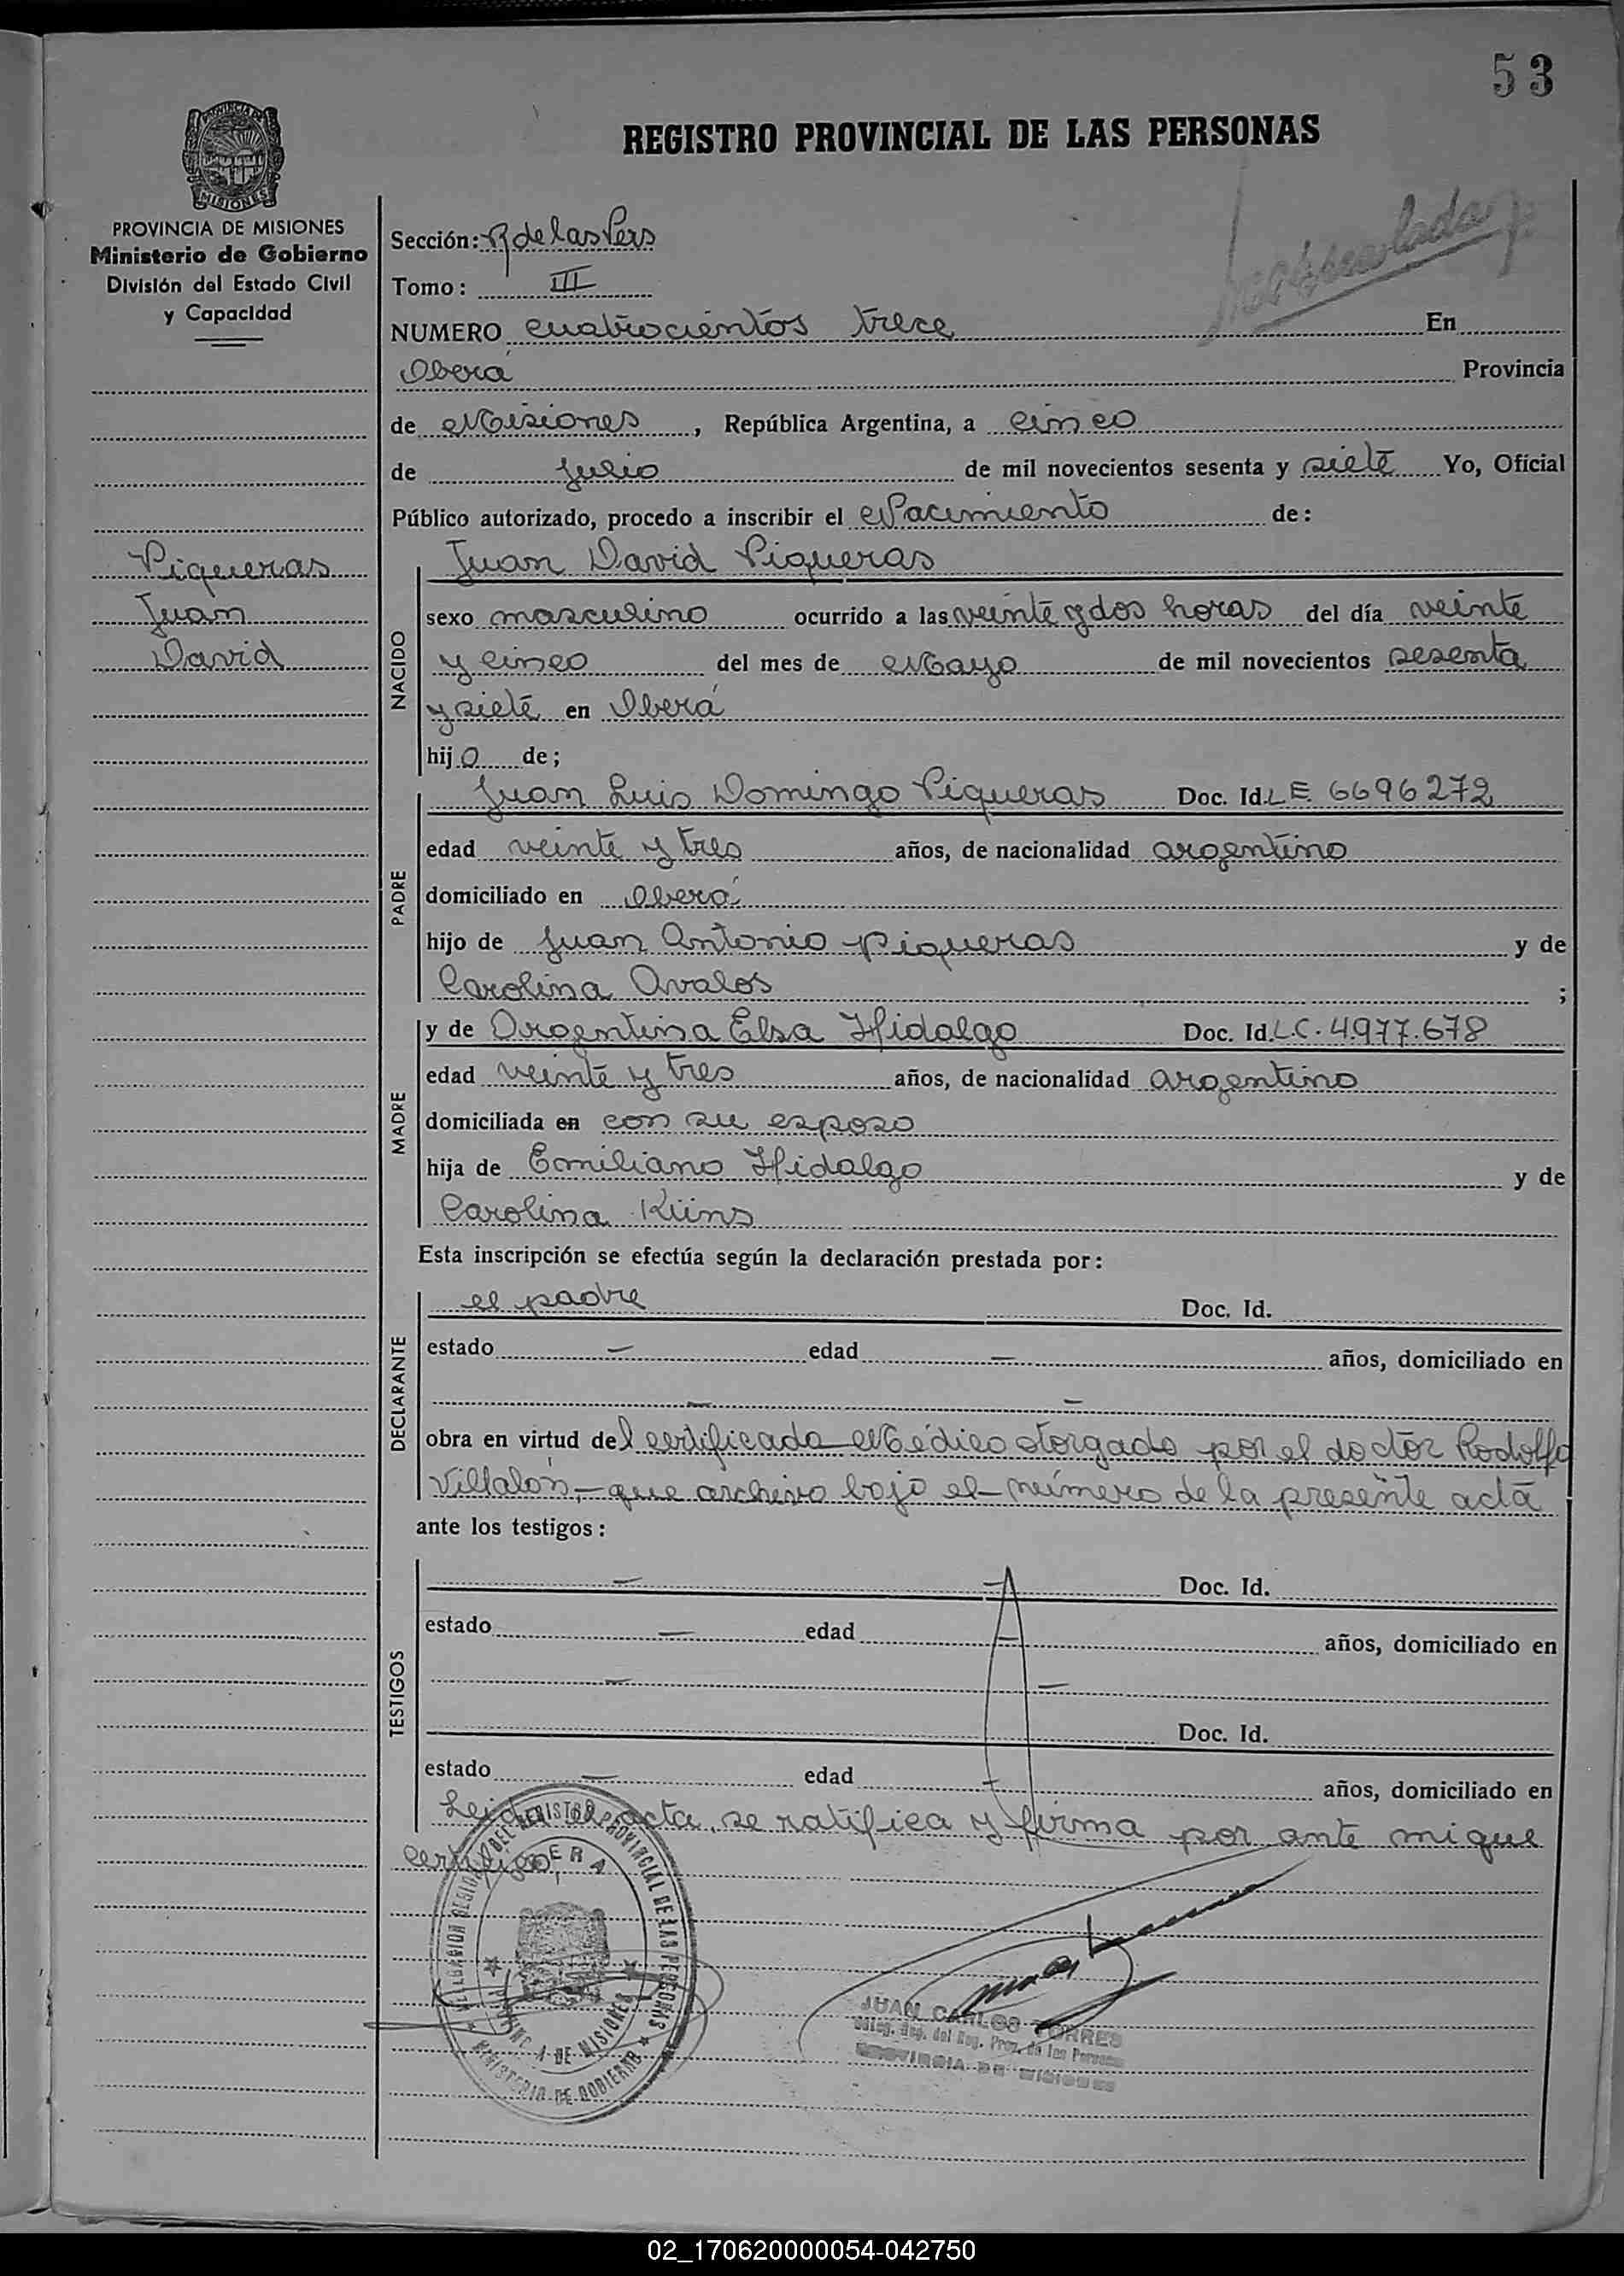 53
REGISTRO PROVINCIAL DE LAS PERSONAS
PROVINCIA DE
MISIONES
PROVINCIA DE MISIONES
Ministerio de Gobierno
División del Estado Civil
y Capacidad
Sección: R de las Pers
Tomo: III
NUMERO cuatrocientos trece En
Oberá Provincia
de Misiones, República Argentina, a cinco
de julio de mil novecientos sesenta y siete Yo, Oficial
Público autorizado, procedo a inscribir el Nacimiento de:
Piqueras
Juan
David
NACIDO
Juan David Piqueras
sexo masculino ocurrido a las veinte y dos horas del día veinte
y cinco del mes de Mayo de mil novecientos sesenta
y siete en Oberá
hijo de;
PADRE
Juan Luis Domingo Piqueras Doc. Id. L.E. 6696272
edad veinte y tres años, de nacionalidad argentino
domiciliado en Oberá
hijo de Juan Antonio piqueras y de
Carolina Avalos ;
MADRE
y de Argentina Elsa Hidalgo Doc. Id. L.C. 4.977.678
edad veinte y tres años, de nacionalidad argentino
domiciliada en con su esposo
hija de Emiliano Hidalgo y de
Carolina Küns
Esta inscripción se efectúa según la declaración prestada por:
DECLARANTE
el padre Doc. Id.
estado — edad — años, domiciliado en
— —
obra en virtud del certificado Médico otorgado por el doctor Rodolfo
Villalón,- que archivo bajo el número de la presente acta
ante los testigos:
TESTIGOS
— Doc. Id.
estado — edad — años, domiciliado en
— —
Doc. Id.
estado — edad — años, domiciliado en
Leida el acta, se ratifica y firma por ante mi que
certifico,
REGISTRO PROVINCIAL DE LAS PERSONAS
OBERA
PROVINCIA DE MISIONES
MINISTERIO DE GOBIERNO
JUAN CARLOS TORRES
Deleg. Reg. del Reg. Prov. de las Personas
PROVINCIA DE MISIONES
02_170620000054-042750